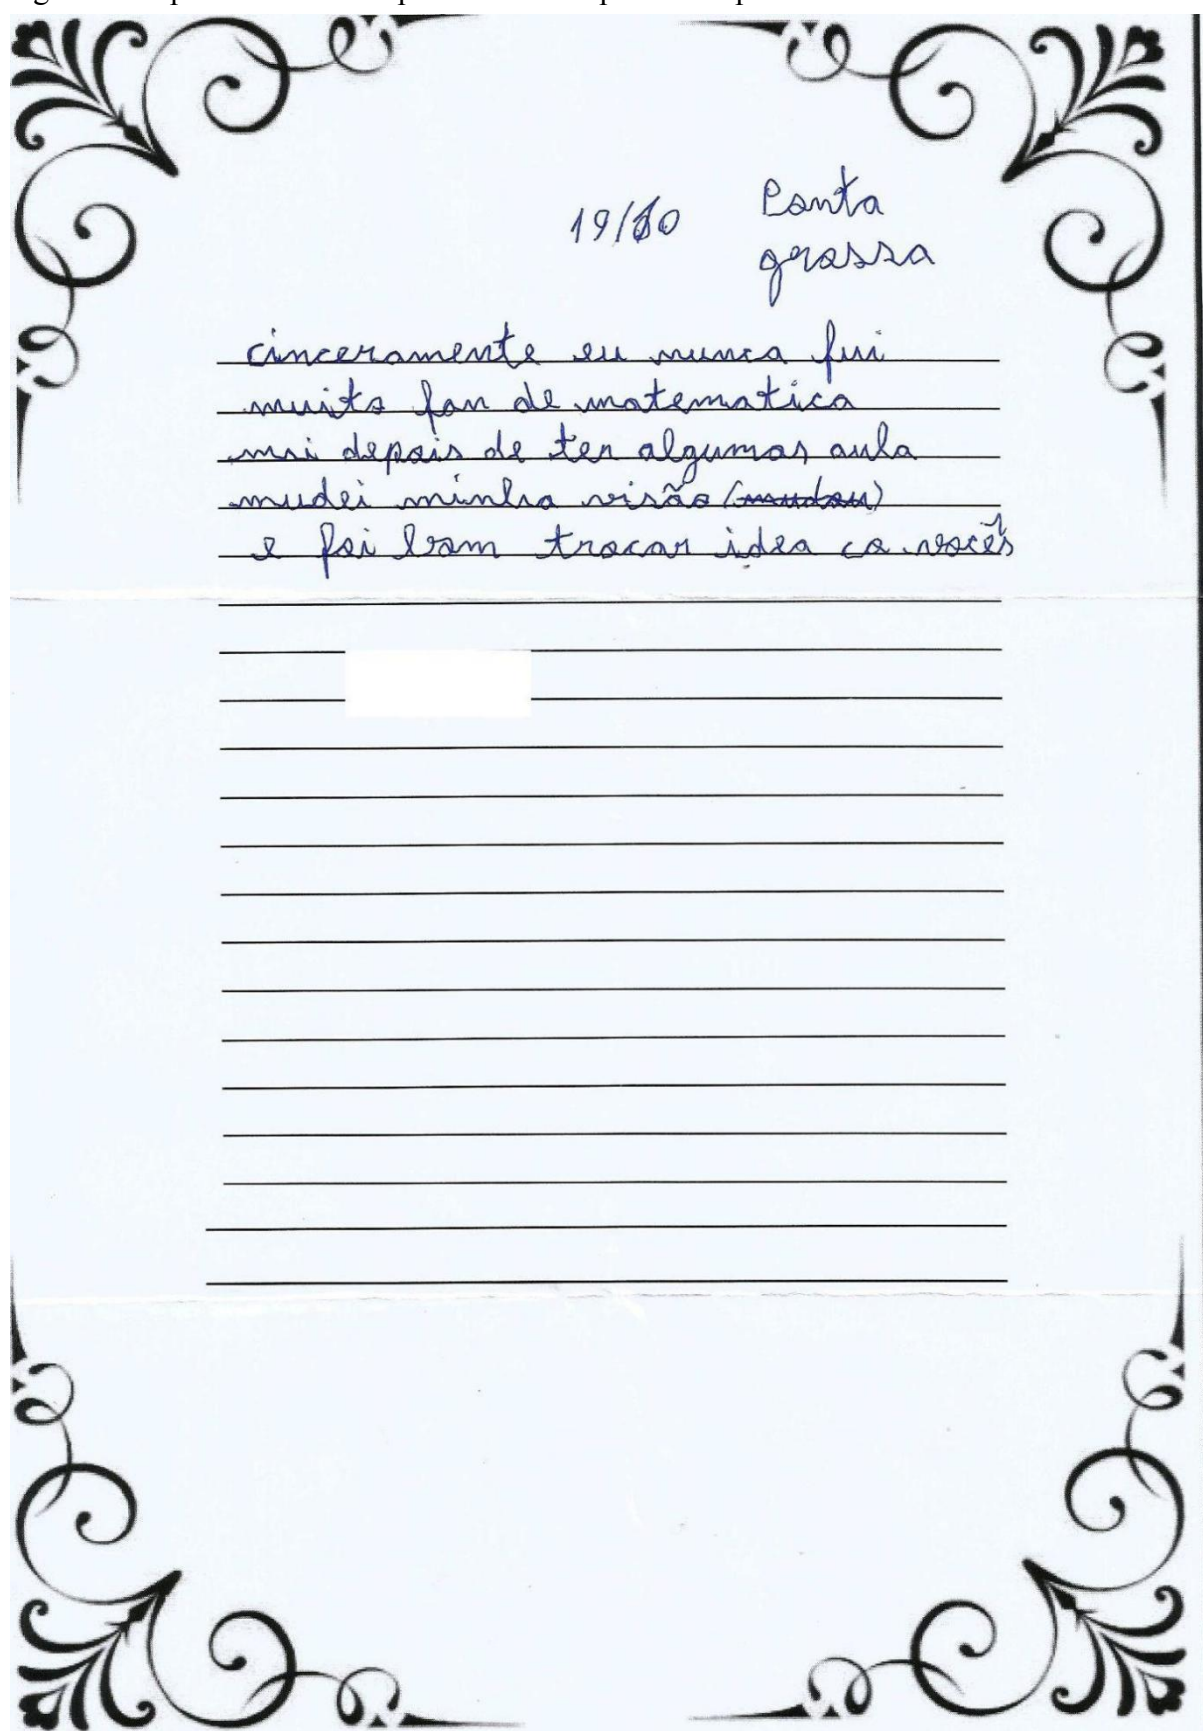 19/10 Ponta
grossa
cinceramente eu nunca fui
muito fan de matematica
mai depois de ter algumas aula
mudei minha visão (mudou)
e foi bom trocar idea co vocês